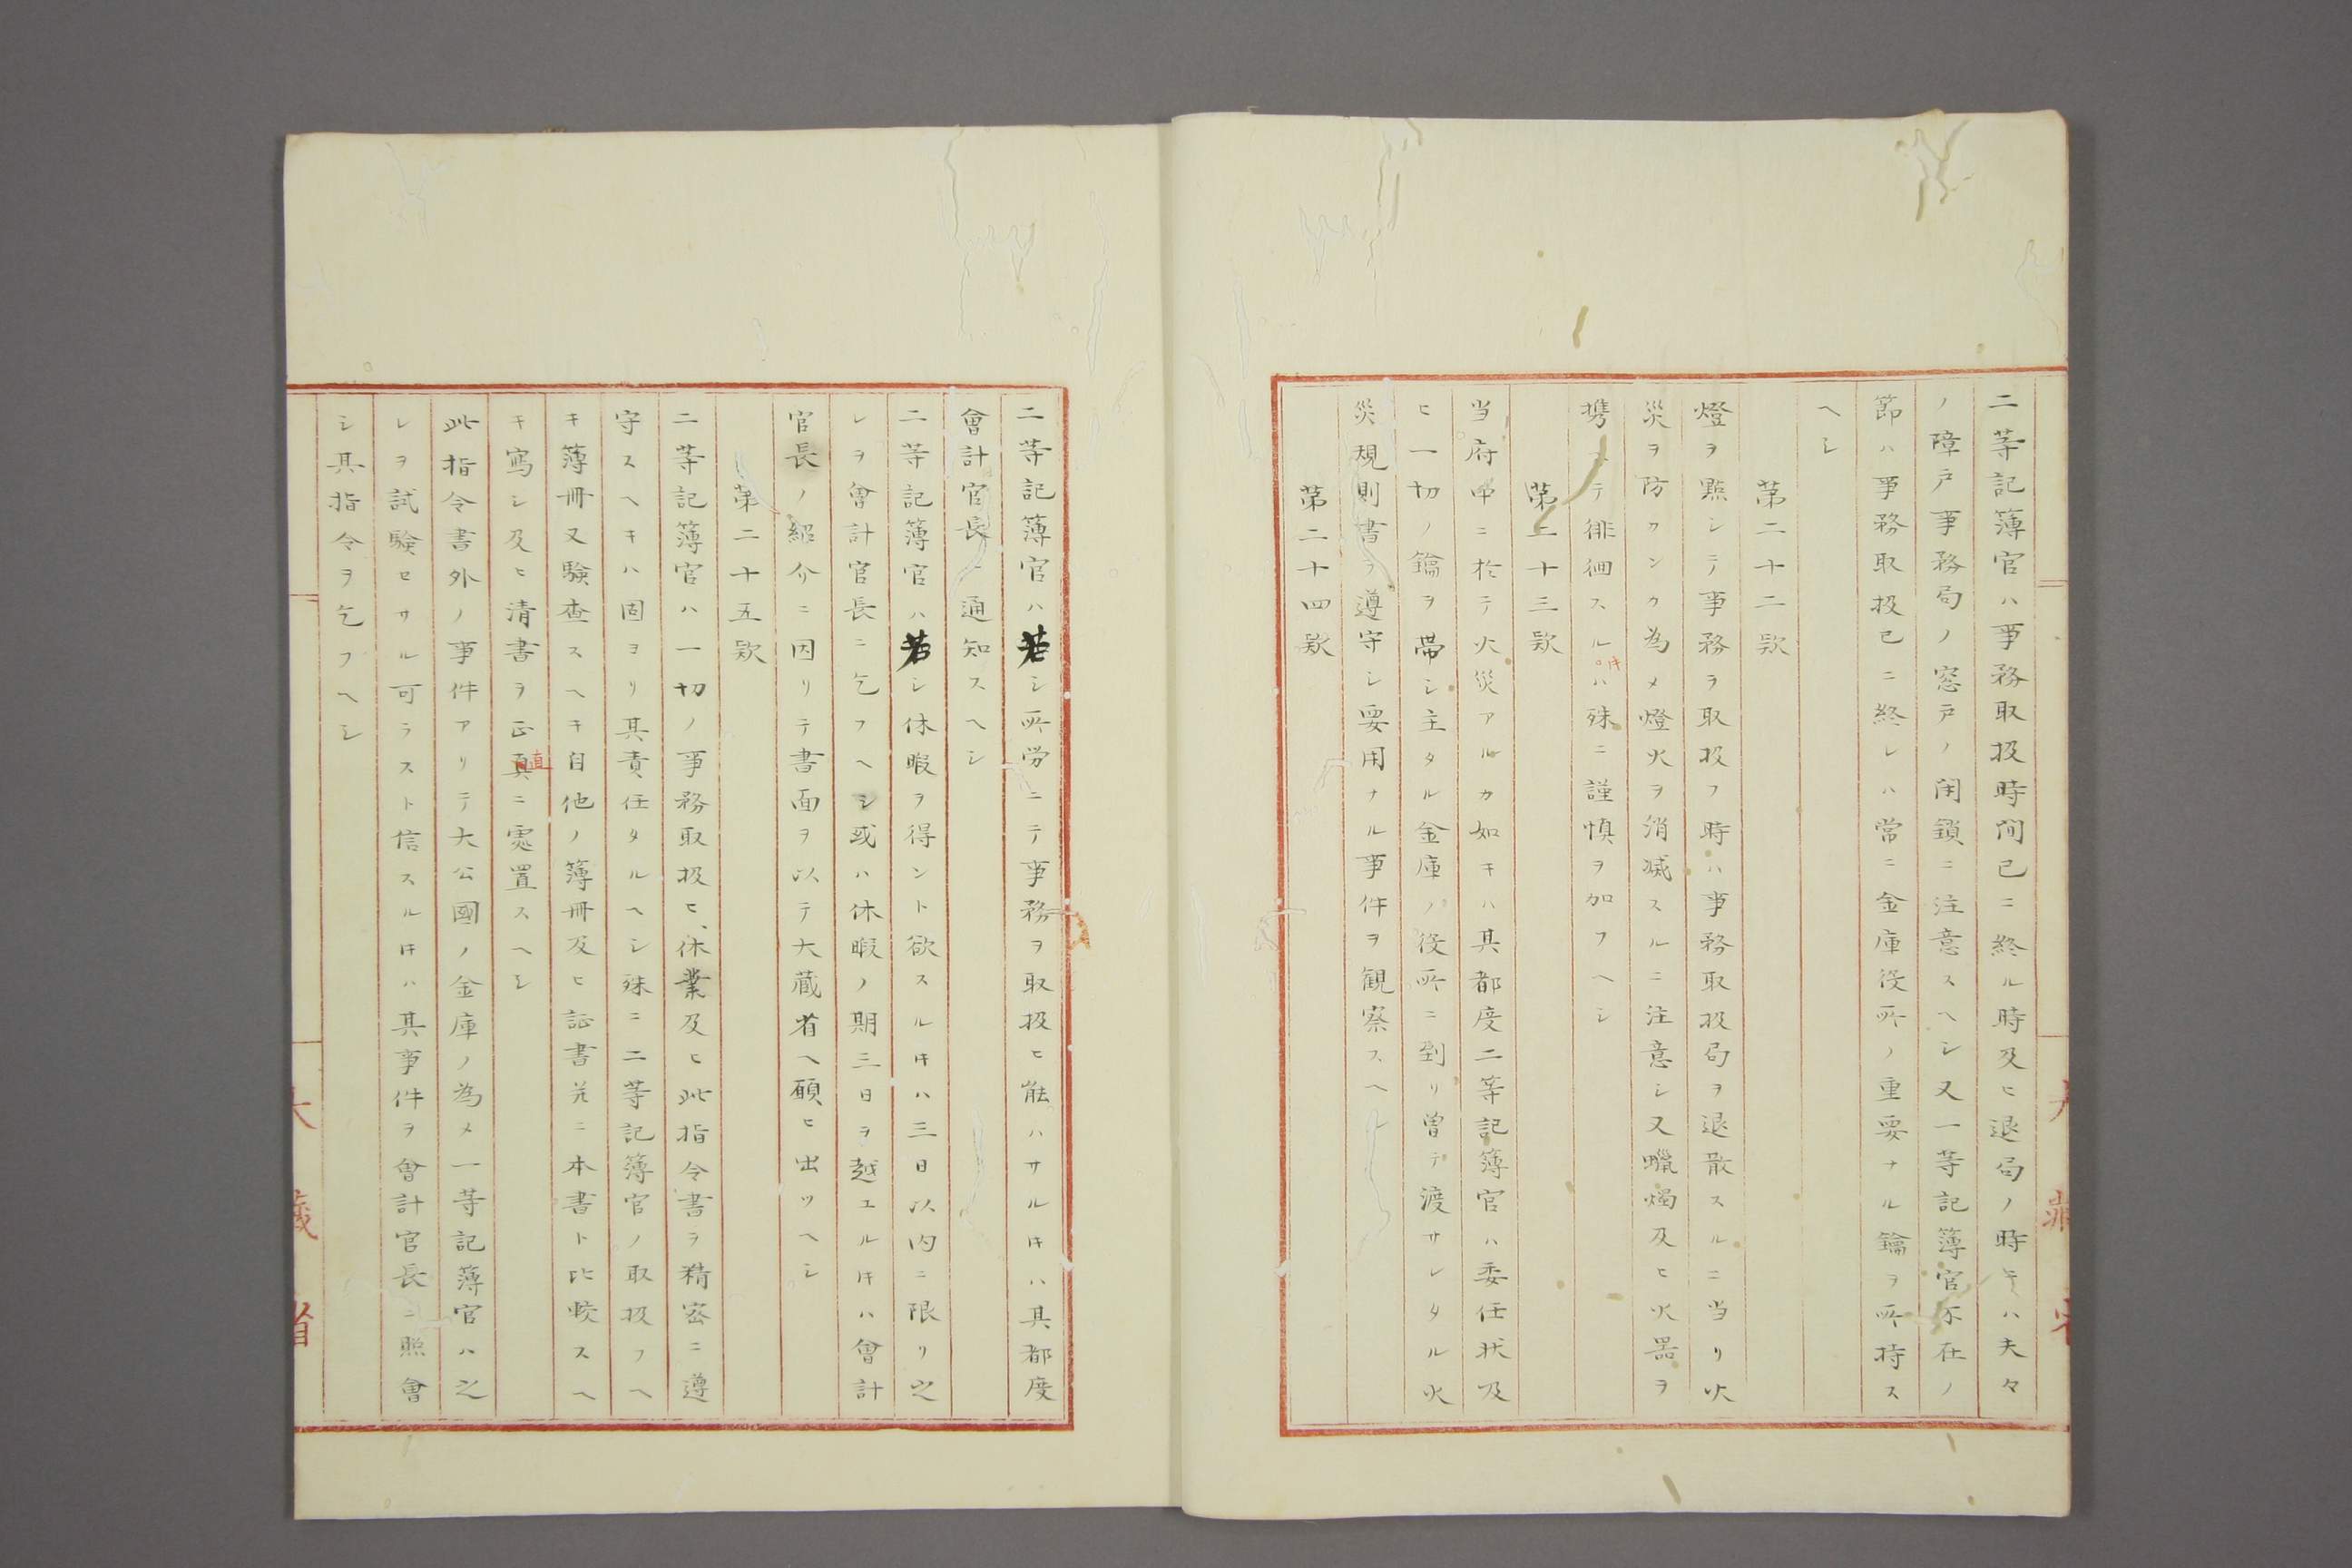 二等記簿官ハ事務取扱時间已ニ終ル時及ヒ退局ノ時キハ夫々
ノ障戸事務局ノ窓戸ノ闭鎖ニ注意スヘシ又一等記簿官不在ノ
節ハ事務取扱已ニ終レハ常ニ金庫役所ノ重要ナル鑰ヲ所持ス
ヘシ
第二十二欵
燈ヲ點シテ事務ヲ取扱フ時ハ事務取扱局ヲ退散スルニ当リ火
災ヲ防カンカ為メ燈火ヲ消滅スルニ注意シ又蠟燭及ヒ火器ヲ
携ヘテ徘徊スルキハ殊ニ謹慎ヲ加フヘシ
第二十三欵
当府中ニ於テ火災アルカ如キハ其都度二等記簿官ハ委任状及
ヒ一切ノ鑰ヲ帶シ主タル金庫ノ役所ニ到リ曽テ渡サレタル火
災規則書ヲ遵守シ要用ナル事件ヲ観察スヘシ
第二十四欵
二等記簿官ハ若シ所労ニテ事務ヲ取扱ヒ能ハサルキハ其都度
會計官長ニ通知スヘシ
二等記簿官ハ若シ休暇ヲ得ント欲スルキハ三日以内ニ限リ之
レヲ會計官長ニ乞フヘシ或ハ休暇ノ期三日ヲ越エルキハ會計
官長ノ紹介ニ因リテ書面ヲ以テ大蔵省ヘ願ヒ出ツヘシ
第二十五欵
二等記簿官ハ一切ノ事務取扱ヒ、休業及ヒ此指令書ヲ精密ニ遵
守スヘキハ固ヨリ其責任タルヘシ殊ニ二等記簿官ノ取扱フヘ
キ薄冊又験査スヘキ自他ノ簿冊及ヒ証書並ニ本書ト比較スヘ
キ寫シ及ヒ清書ヲ正真直ニ處置スヘシ
此指令書外ノ事件アリテ大公國ノ金庫ノ為メ一等記簿官ハ之
レヲ試験セサル可ラスト信スルキハ其事件ヲ會計官長ニ照會
シ其指令ヲ乞フヘシ
大藏省